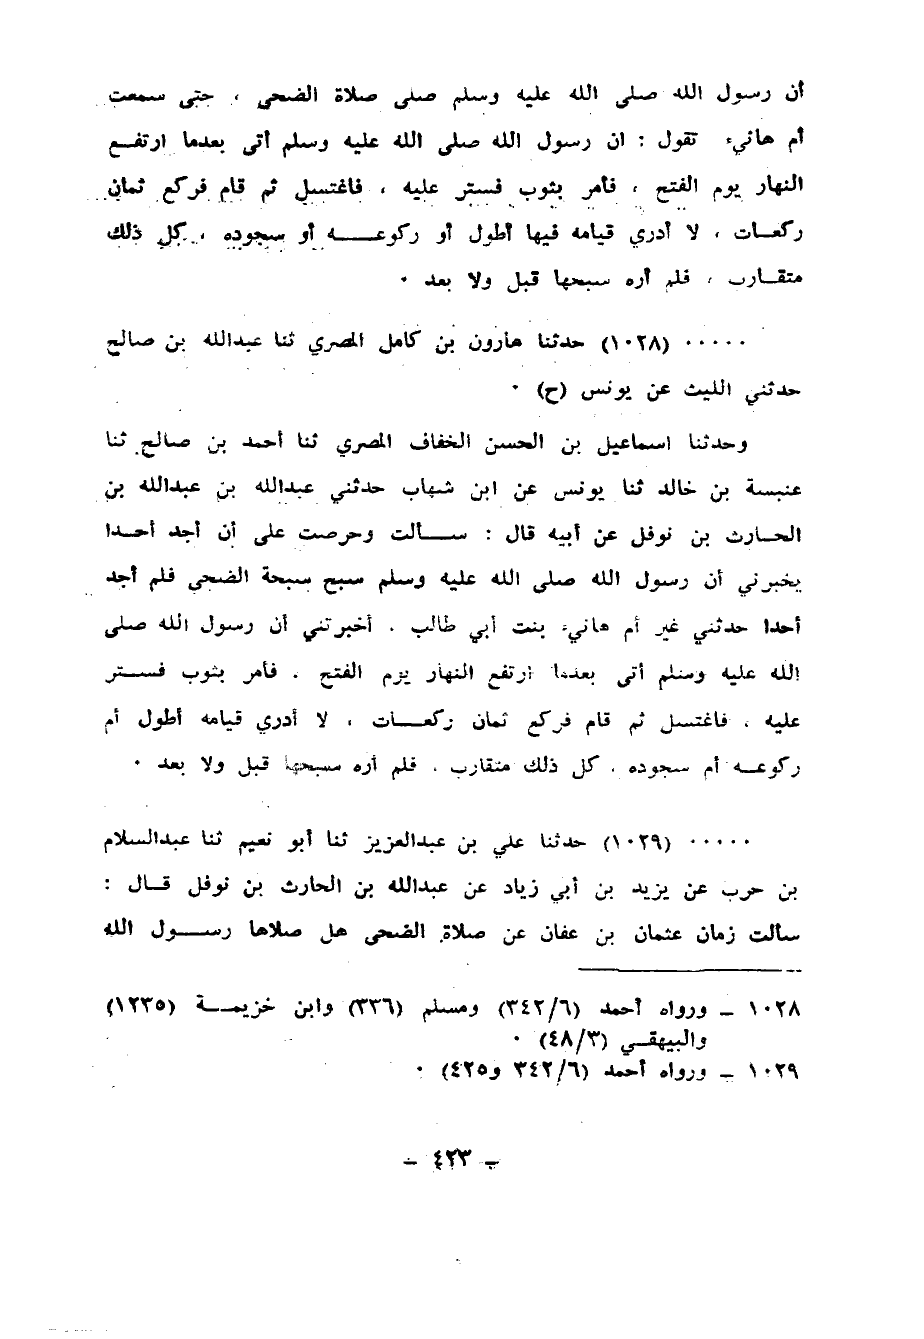 أن رسول الله صلى الله عليه وسلم صلى صلاة الضحى ، حتى سمعت
أم هانيء تقول : ان رسول الله صلى الله عليه وسلم أتى بعدما ارتفـع
النهار يوم الفتح ، فأمر بثوب فستر عليه ، فاغتسل ثم قام فركع ثمان
ركعـات ، لا أدري قيامه فيها أطول أو ركوعـــه أو سجوده ، كل ذلك
متقـارب ، فلم أره سبحها قبل ولا بعد ٠
٠٠٠٠٠ (١٠٢٨) حدثنا هارون بن كامل المصري ثنا عبدالله بن صالح
حدثني الليث عن يونس (ح) ٠
وحدثنا اسماعيل بن الحسن الخفاف المصري ثنا أحمد بن صالح ثنا
عنبسة بن خالد ثنا يونس عن ابن شهاب حدثني عبدالله بن عبدالله بن
الحـارث بن نوفل عن أبيه قال : ســألت وحرصت على أن أجد أحـدا
يخبرني أن رسول الله صلى الله عليه وسلم سبح سبحة الضحى فلم أجد
أحدا حدثني غير أم هانيء بنت أبي طالب . أخبرتني أن رسول الله صلى
الله عليه وسلم أتى بعدما ارتفع النهار يوم الفتح . فأمر بثوب فســتر
عليه . فاغتسل ثم قام فركع ثمان ركعــات ، لا أدري قيامه أطول أم
ركوعـه أم سجوده . كل ذلك متقارب . فلم أره سبحها قبل ولا بعد ٠
٠٠٠٠٠ (١٠٢٩) حدثنا علي بن عبدالعزيز ثنا أبو نعيم ثنا عبدالسلام
بن حرب عن يزيد بن أبي زياد عن عبدالله بن الحارث بن نوفل قـال :
سألت زمان عثمان بن عفان عن صلاة الضحى هل صلاها رســول الله
١٠٢٨ ـ ورواه أحمد (٣٤٢/٦) ومسلم (٣٣٦) وابن خزيمــة (١٢٣٥)
والبيهقـي (٤٨/٣) ٠
١٠٢٩ ـ ورواه أحمد (٣٤٢/٦ و٤٢٥) ٠
ـ ٤٢٣ ـ